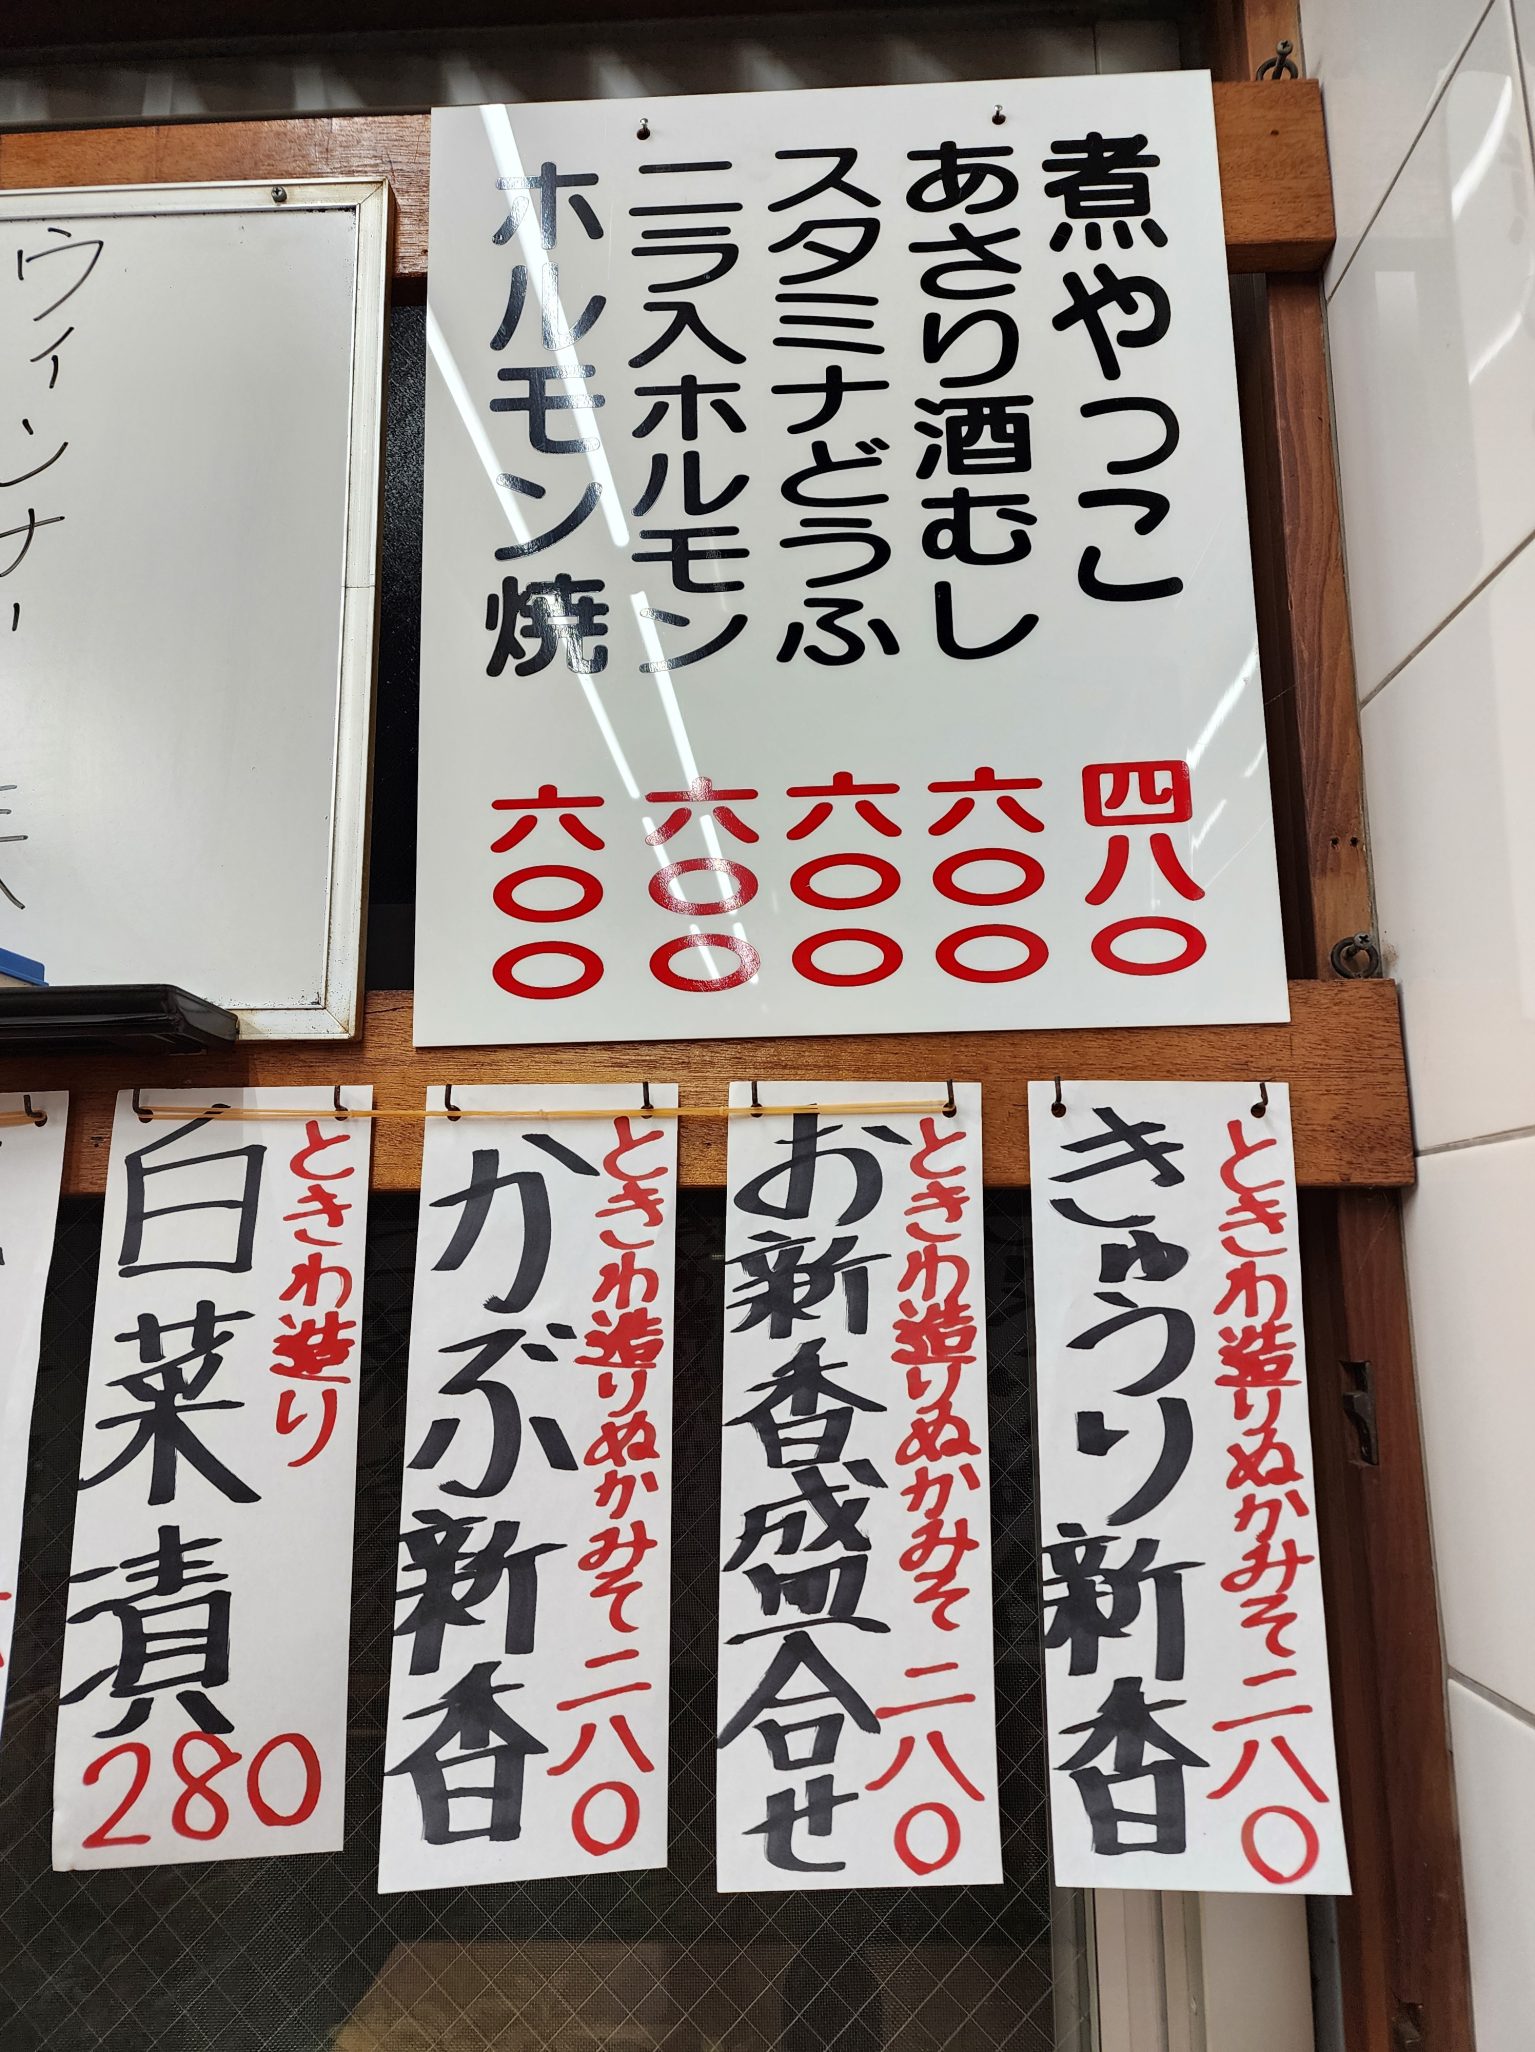 煮やっこ 四八〇
あさり酒むし 六〇〇
スタミナどうふ 六〇〇
ニラ入ホルモン 六〇〇
ホルモン焼 六〇〇
ウィンナー
ときわ造りぬかみそ 二八〇
きゅうり新香
ときわ造りぬかみそ 二八〇
お新香盛合せ
ときわ造りぬかみそ 二八〇
かぶ新香
ときわ造り
白菜漬
280